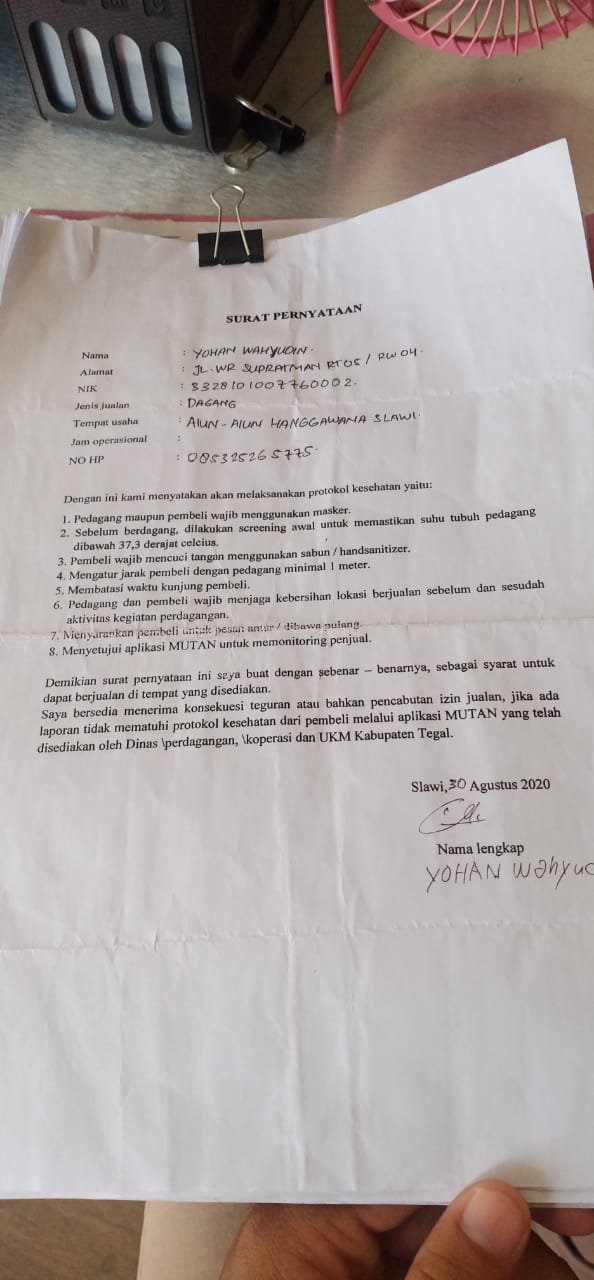 SURAT PERNYATAAN
Nama : YOHAN WAHYUDIN.
Alamat : JL. WR SUPRATMAN RT05 / RW 04.
NIK : 3328101007760002.
Jenis jualan : DAGANG
Tempat usaha : AlUN - AlUN HANGGAWANA SLAWI.
Jam operasional :
NO HP : 085325265775.
Dengan ini kami menyatakan akan melaksanakan protokol kesehatan yaitu:
1. Pedagang maupun pembeli wajib menggunakan masker.
2. Sebelum berdagang, dilakukan screening awal untuk memastikan suhu tubuh pedagang
dibawah 37,3 derajat celcius.
3. Pembeli wajib mencuci tangan menggunakan sabun / handsanitizer.
4. Mengatur jarak pembeli dengan pedagang minimal 1 meter.
5. Membatasi waktu kunjung pembeli.
6. Pedagang dan pembeli wajib menjaga kebersihan lokasi berjualan sebelum dan sesudah
aktivitas kegiatan perdagangan.
7. Menyarankan pembeli untuk pesan antar / dibawa pulang.
8. Menyetujui aplikasi MUTAN untuk memonitoring penjual.
Demikian surat pernyataan ini saya buat dengan sebenar – benarnya, sebagai syarat untuk
dapat berjualan di tempat yang disediakan.
Saya bersedia menerima konsekuesi teguran atau bahkan pencabutan izin jualan, jika ada
laporan tidak mematuhi protokol kesehatan dari pembeli melalui aplikasi MUTAN yang telah
disediakan oleh Dinas \perdagangan, \koperasi dan UKM Kabupaten Tegal.
Slawi, 30 Agustus 2020
Nama lengkap
YOHAN Wahyud